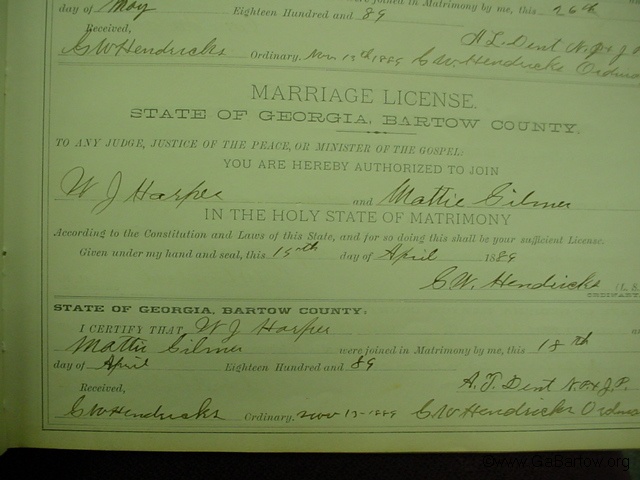 day of May Eighteen Hundred and 89 were joined in Matrimony by me, this 26th
Received, H L Dent N.P & J
CW Hendricks Ordinary, Nov 13th 1889 C.W. Hendricks Ordina
MARRIAGE LICENSE.
STATE OF GEORGIA, BARTOW COUNTY.
TO ANY JUDGE, JUSTICE OF THE PEACE, OR MINISTER OF THE GOSPEL:
YOU ARE HEREBY AUTHORIZED TO JOIN
W J Harper and Mattie Gilmer
IN THE HOLY STATE OF MATRIMONY
According to the Constitution and Laws of this State, and for so doing this shall be your sufficient License.
Given under my hand and seal, this 15th day of April 1889
C.W. Hendricks (L. S.
ORDINARY
STATE OF GEORGIA, BARTOW COUNTY:
I CERTIFY THAT W J Harper an
Mattie Gilmer were joined in Matrimony by me, this 18th
day of April Eighteen Hundred and 89
Received, A. T. Dent N.P. & J.P.
CW Hendricks Ordinary. Nov 13-1889 CW Hendricks Ordina
©www.GaBartow.org